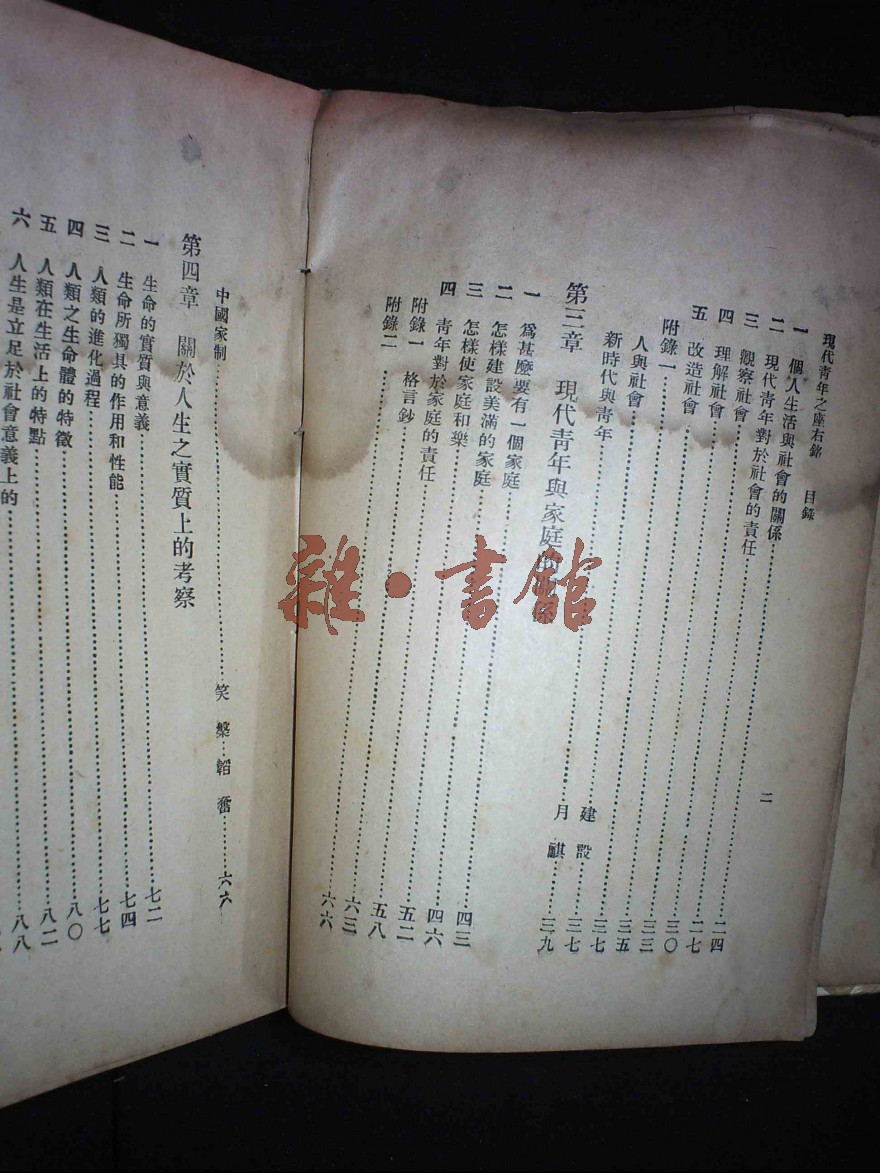 現代青年之座右銘　目錄
二
一　個人生活與社會的關係……二四
二　現代青年對於社會的責任……二七
三　觀察社會……三〇
四　理解社會……三三
五　改造社會……三五
附錄一……三七
人與社會……建設……三七
新時代與青年……月祺……三九
第三章　現代青年與家庭的關係
一　爲甚麽要有一個家庭……四三
二　怎樣建設美滿的家庭……四六
三　怎樣使家庭和樂……五二
四　青年對於家庭的責任……五八
附錄一　格言鈔……六三
附錄二……六六
中國家制……笑槃‧韜奮……六六
第四章　關於人生之實質上的考察
一　生命的實質與意義……七二
二　生命所獨具的作用和性能……七四
三　人類的進化過程……七七
四　人類之生命體的特徵……八〇
五　人類在生活上的特點……八二
六　人生是立足於社會意義上的……八八
雜·書館